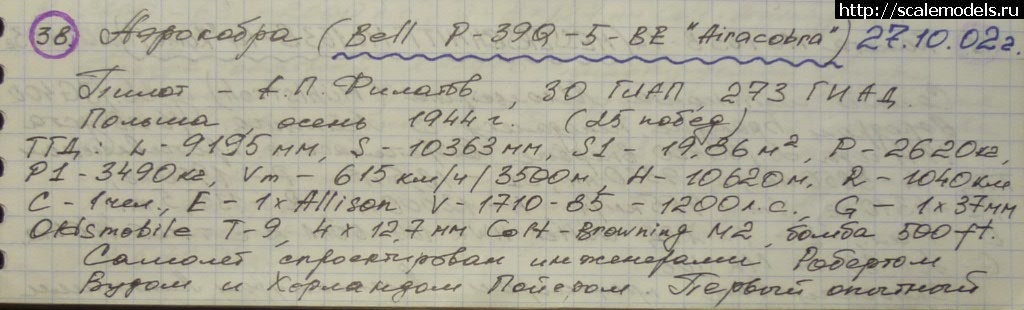 http://scalemodels.ru
38. Аэрокобра (Bell P-39Q-5-BE "Airacobra") 27.10.02г.
Пилот - А.П. Филатов, 30 ГИАП, 273 ГИАД.
Польша, осень 1944г. (25 побед)
ТТД: L - 9195 мм, S - 10363 мм, S1 - 19,86 м², P - 2620кг,
P1 - 3490кг, Vm - 615 км/ч/3500м, H - 10620м, R - 1040км
C - 1чел., E - 1xAllison V-1710-85 - 1200л.с., G - 1x37мм
Oldsmobile T-9, 4x12,7 мм Colt-Browning M2, бомба 500ft.
Самолет спроектирован инженерами Робертом
Вудом и Харландом Пойером. Первый опытный